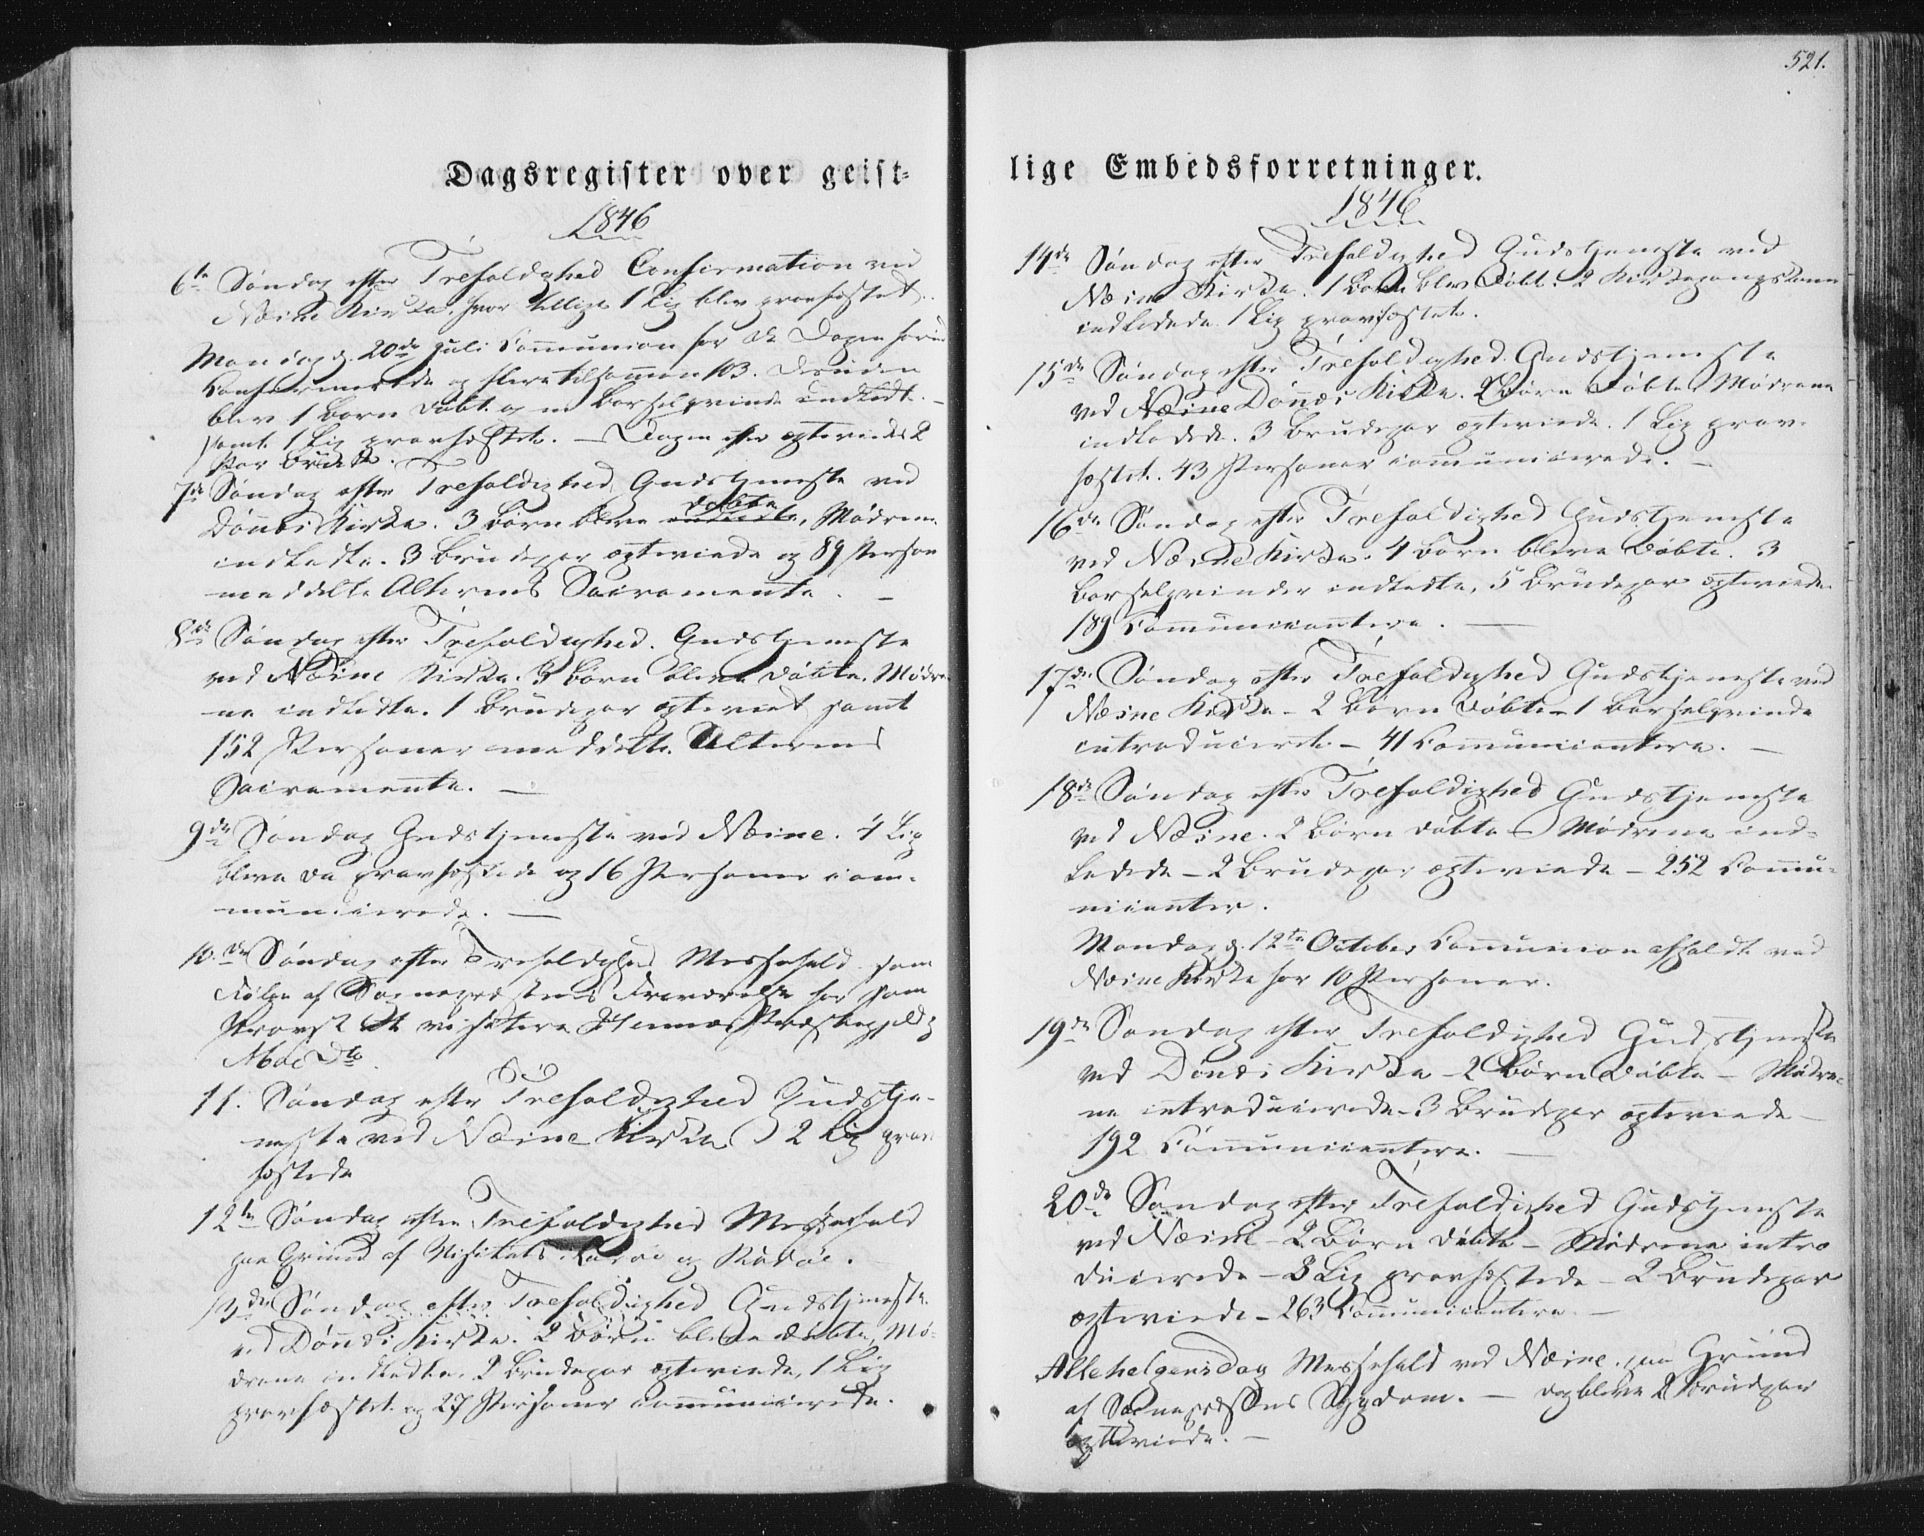 Dagsregister over geist-
1846
6te Søndag efter Trefoldighed Confirmation ved
Næsne Kirke, hvor tillige 1 Lig blev gravfæstet.
Mandag d. 20de Juli Communion for de Dagen forud
Confirmerede og flere tilsammen 103. Desuden
blev 1 Barn døbt og en Barselqvinde indledt –
samt 1 Lig gravfæstet. – Dagen efter ægteviedes 2
Par Brudefolk.
7de Søndag efter Trefoldighed Gudstjeneste ved
Dønnes Kirke. 3 Børn bleve døbte, Mødrene
indledte. 3 Brudepar ægteviede og 89 Person
meddelte Alterens Sacramente. –
8de Søndag efter Trefoldighed. Gudstjeneste
ved Næsne Kirke. 3 Børn bleve døbte. Mødre
ne indledte. 1 Brudepar ægteviet samt
152 Personer meddelte Alterens
Sacramente. –
9de Søndag Gudstjeneste ved Næsne. 4 Lig
bleve da gravfæstede og 16 Personer com-
municerede. –
10de Søndag efter Trefoldighed Messefald som
Følge af Sognepræstens Fraværelse for som
Provst at visitere Hemnæs Præstegjeld og
Moe Do.
11. Søndag efter Trefoldighed Gudstje-
neste ved Næsne Kirke 2 Lig grav
fæstede
12te Søndag efter Trefoldighed Messefald
paa Grund af Visitats i Lurøe og Rødøe.
13de Søndag efter Trefoldighed Gudstjeneste
ved Dønnes Kirke. 2 Børn bleve døbte, Mø-
drene indledte, 2 Brudepar ægteviede, 1 Lig
gravfæstet og 27 Personer communicerede.
521.
lige Embedsforretninger.
1846
14de Søndag efter Trefoldighed Gudstjeneste ved
Næsne Kirke. 1 Barn blev døbt. 2 Kirkegangskoner
indledede 1 Lig gravfæstet.
15de Søndag efter Trefoldighed. Gudstjeneste
ved Næsne Dønnes Kirke. 2 Børn døbte Mødrene
indledede. 3 Brudepar ægteviede. 1 Lig grav-
fæstet. 43 Personer communicerede. –
16de Søndag efter Trefoldighed Gudstjeneste
ved Næsne Kirke. 4 Børn bleve døbte. 3
Barselqvinder indledte, 5 Brudepar ægteviede
189 Communicantere. –
17de Søndag efter Trefoldighed Gudstjeneste ved
Næsne Kirke – 2 Børn døbte – 1 Barselqvinde
introduceret – 41 Communicantere. –
18de Søndag efter Trefoldighed Gudstjeneste
ved Næsne. 2 Børn døbte – Mødrene ind-
ledede – 2 Brudepar ægteviede – 252 Commu-
nicanter.
Mandag d. 12te October Communion afholdt ved
Næsne Kirke for 10 Personer.
19de Søndag efter Trefoldighed Gudstjeneste
ved Dønnes Kirke – 2 Børn døbte – Mødre-
ne introducerede – 3 Brudepar ægteviede –
192 Communicantere. –
20de Søndag efter Trefoldighed Gudstjeneste
ved Næsne – 2 Børn døbte – Mødrene intro
ducerede – 3 Lig gravfæstede – 2 Brudepar
ægteviede – 263 Communicantere –
Allehelgensdag Messefald ved Næsne paa Grund
af Sognepræstens Sygdom. – dog bleve 2 Brudepar
ægteviede. –